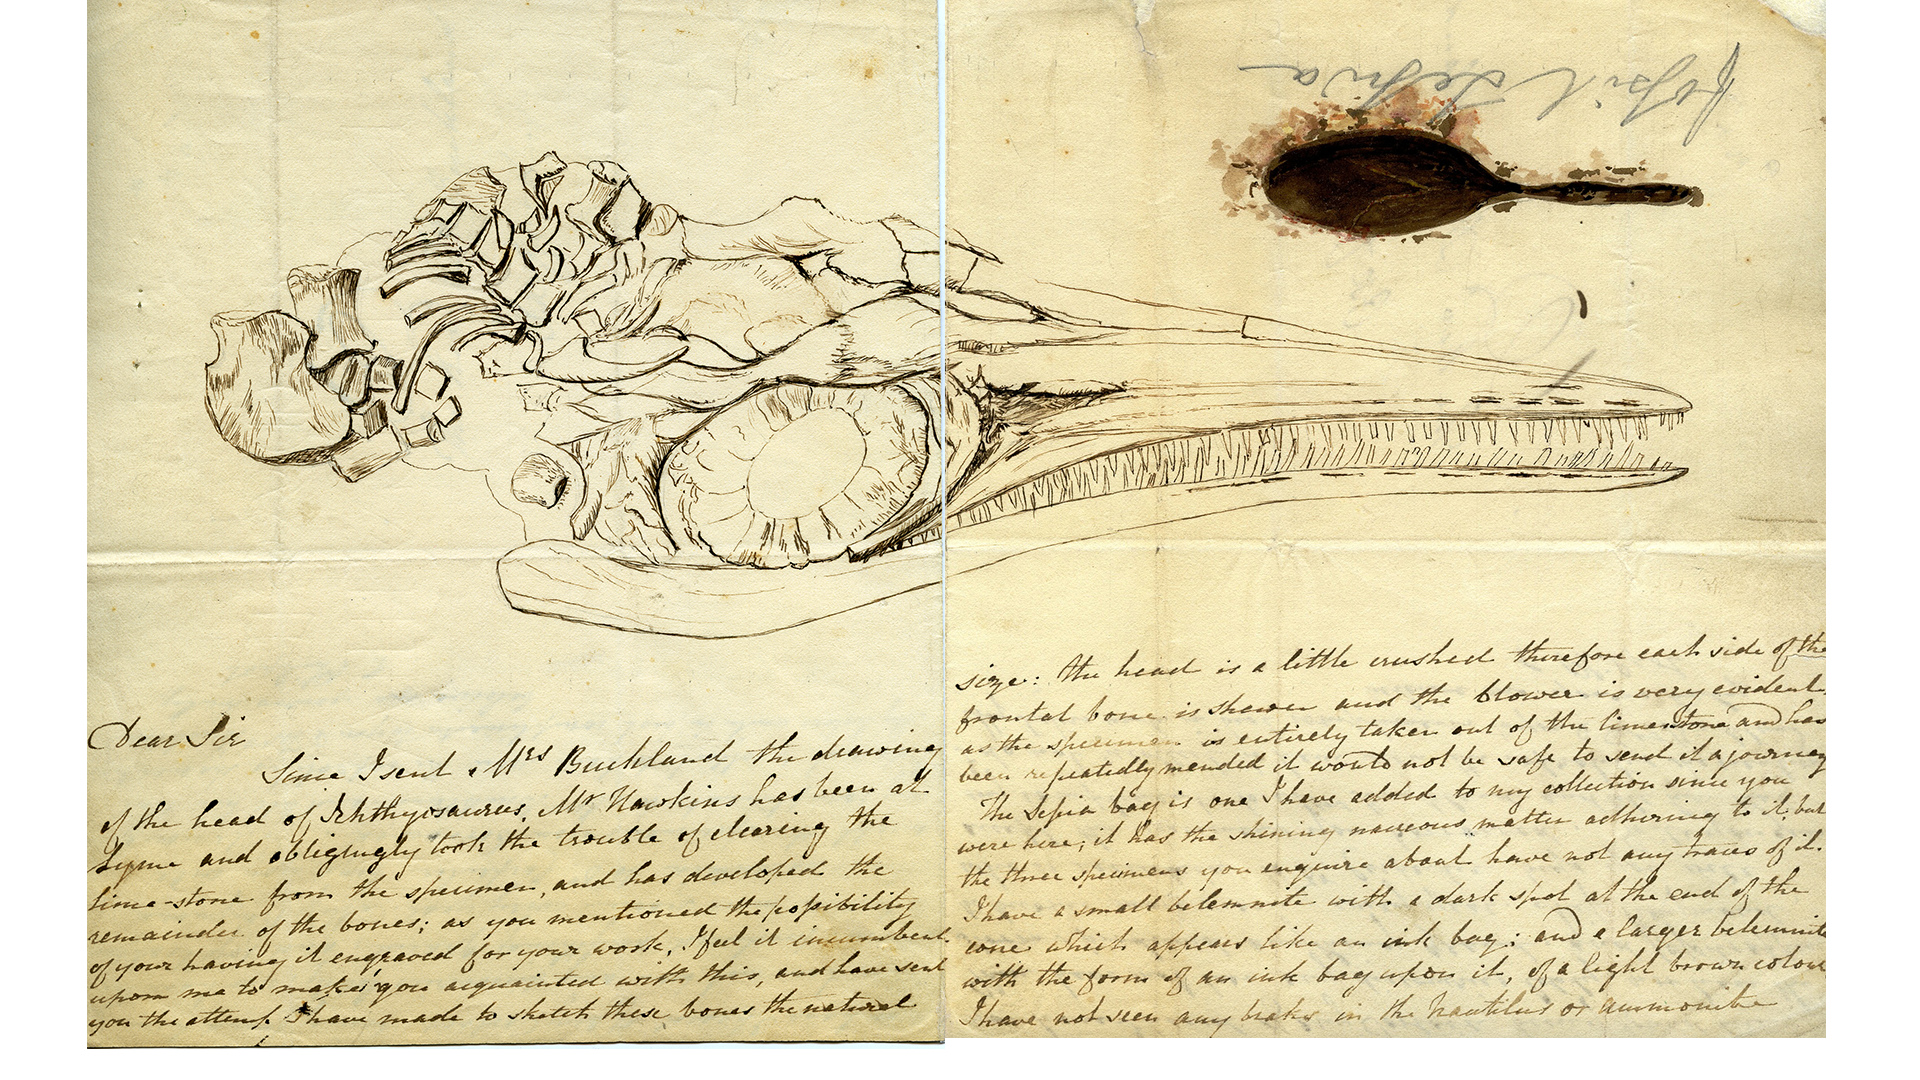 fossil Sepia
Dear Sir
Since I sent Mrs Buckland the drawing
of the head of Ichthyosaurus, Mr Hawkins has been at
Lyme and obligingly took the trouble of clearing the
lime-stone from the specimen, and has developed the
remainder of the bones; as you mentioned the possibility
of your having it engraved for your work, I feel it incumbent
upon me to make you acquainted with this, and have sent
you the attempt I have made to sketch these bones the natural
size: the head is a little crushed therefore each side of the
frontal bone is shewn and the blower is very evident
as the specimen is entirely taken out of the limestone and has
been repeatedly mended it would not be safe to send it a journey
The Sepia bag is one I have added to my collection since you
were here; it has the shining nacreous matter adhering to it, but
the three specimens you enquire about have not any traces of it.
I have a small belemnite with a dark spot at the end of the
cone which appears like an ink bag; and a larger belemnite
with the form of an ink bag upon it, of a light brown colour
I have not seen any beaks in the Nautilus or ammonite